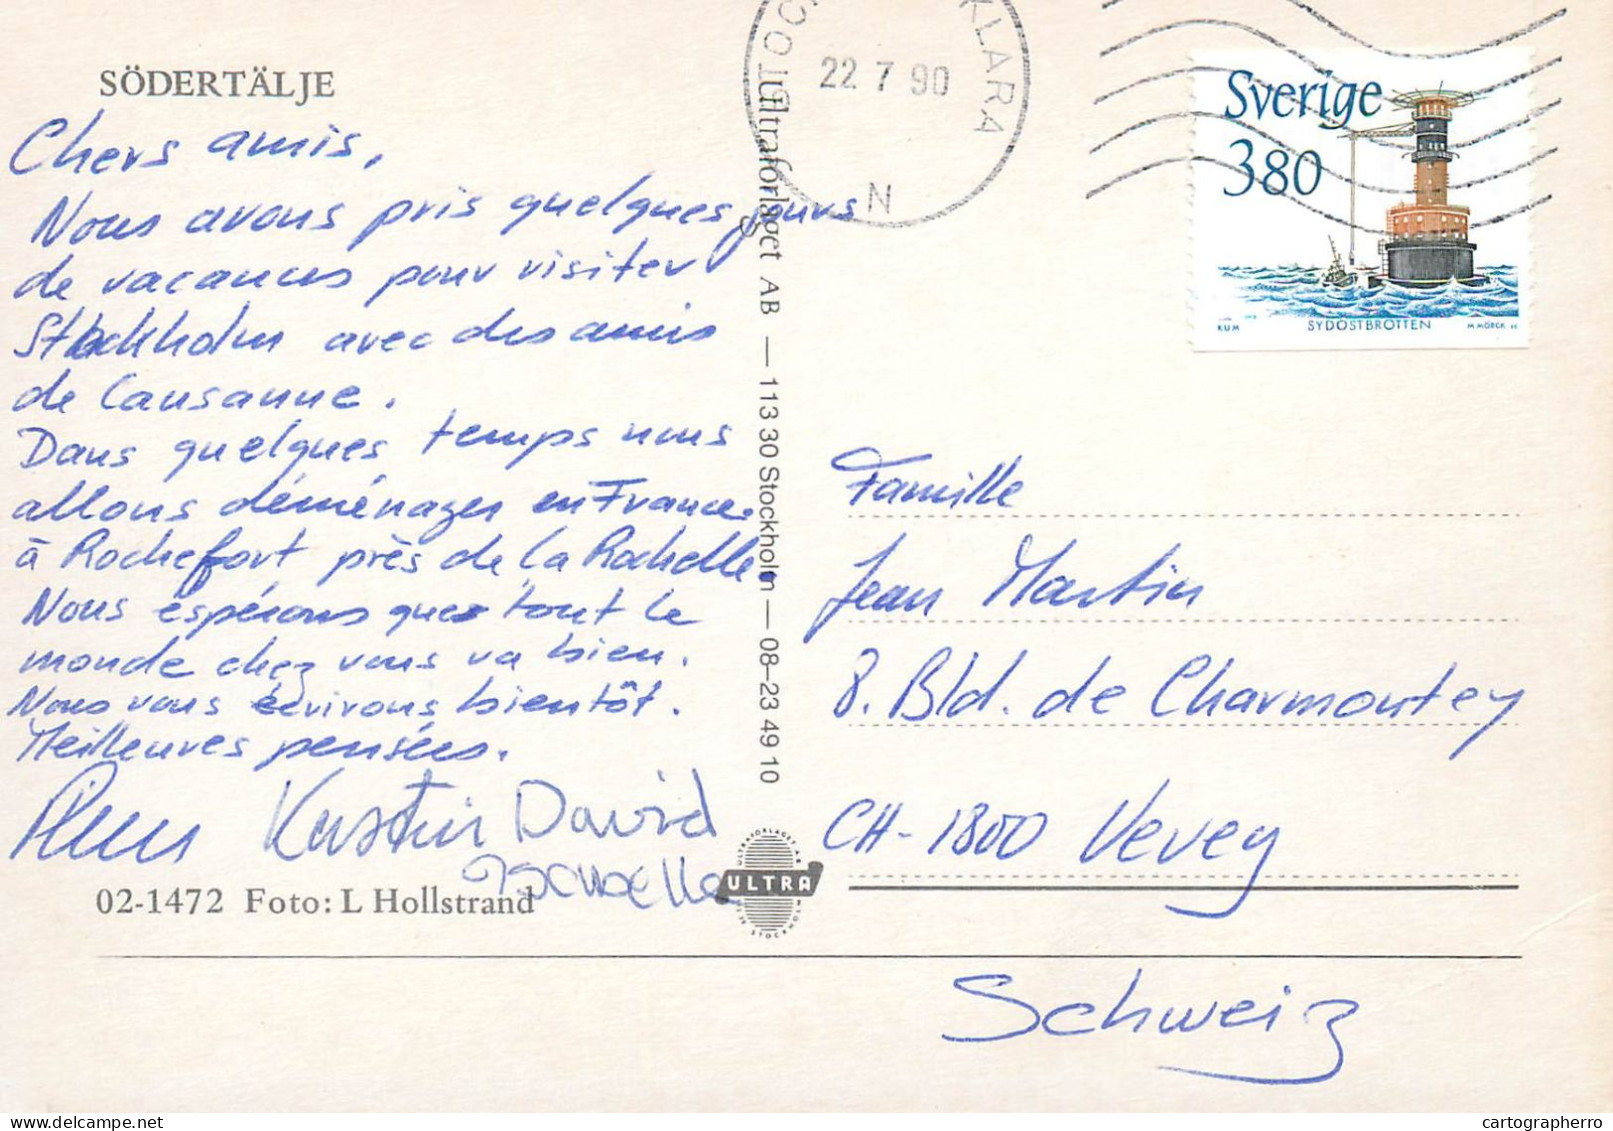 SÖDERTÄLJE
Chers amis,
Nous avons pris quelques jours
de vacances pour visiter
Stockholm avec des amis
de Lausanne.
Dans quelques temps nous
allons déménager en France.
à Rochefort près de la Rochelle.
Nous éspérons que tout le
monde chez vous va bien.
Nous vous écrivons bientôt.
Meilleures pensées.
Kerstin David
02-1472 Foto: L Hollstrand
Ultraförlaget AB — 113 30 Stockholm — 08-23 49 10
ULTRA
KLARA
22 7 90
N
Sverige
380
KUM SYDOSTBROTTEN M MÖRCK
Famille
Jean Martin
8. Bld. de Charmontey
CH-1800 Vevey
Schweiz
cartographerro